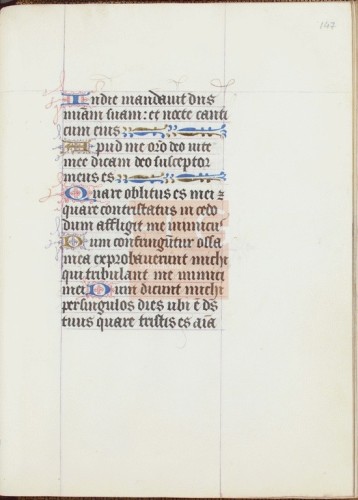 147
In die mandavit dns
miam suam: et nocte canti
cum eius
Apud me oro deo vite
mee dicam deo susceptor
meus es
Quare oblitus es mei
quare contristatus incedo
dum affligit me inimicus
Dum confringutur ossa
mea exprobaverunt michi
qui tribulant me inimici
mei Dum dicunt michi
persingulos dies ubi e ds
tuus quare tristis es aia